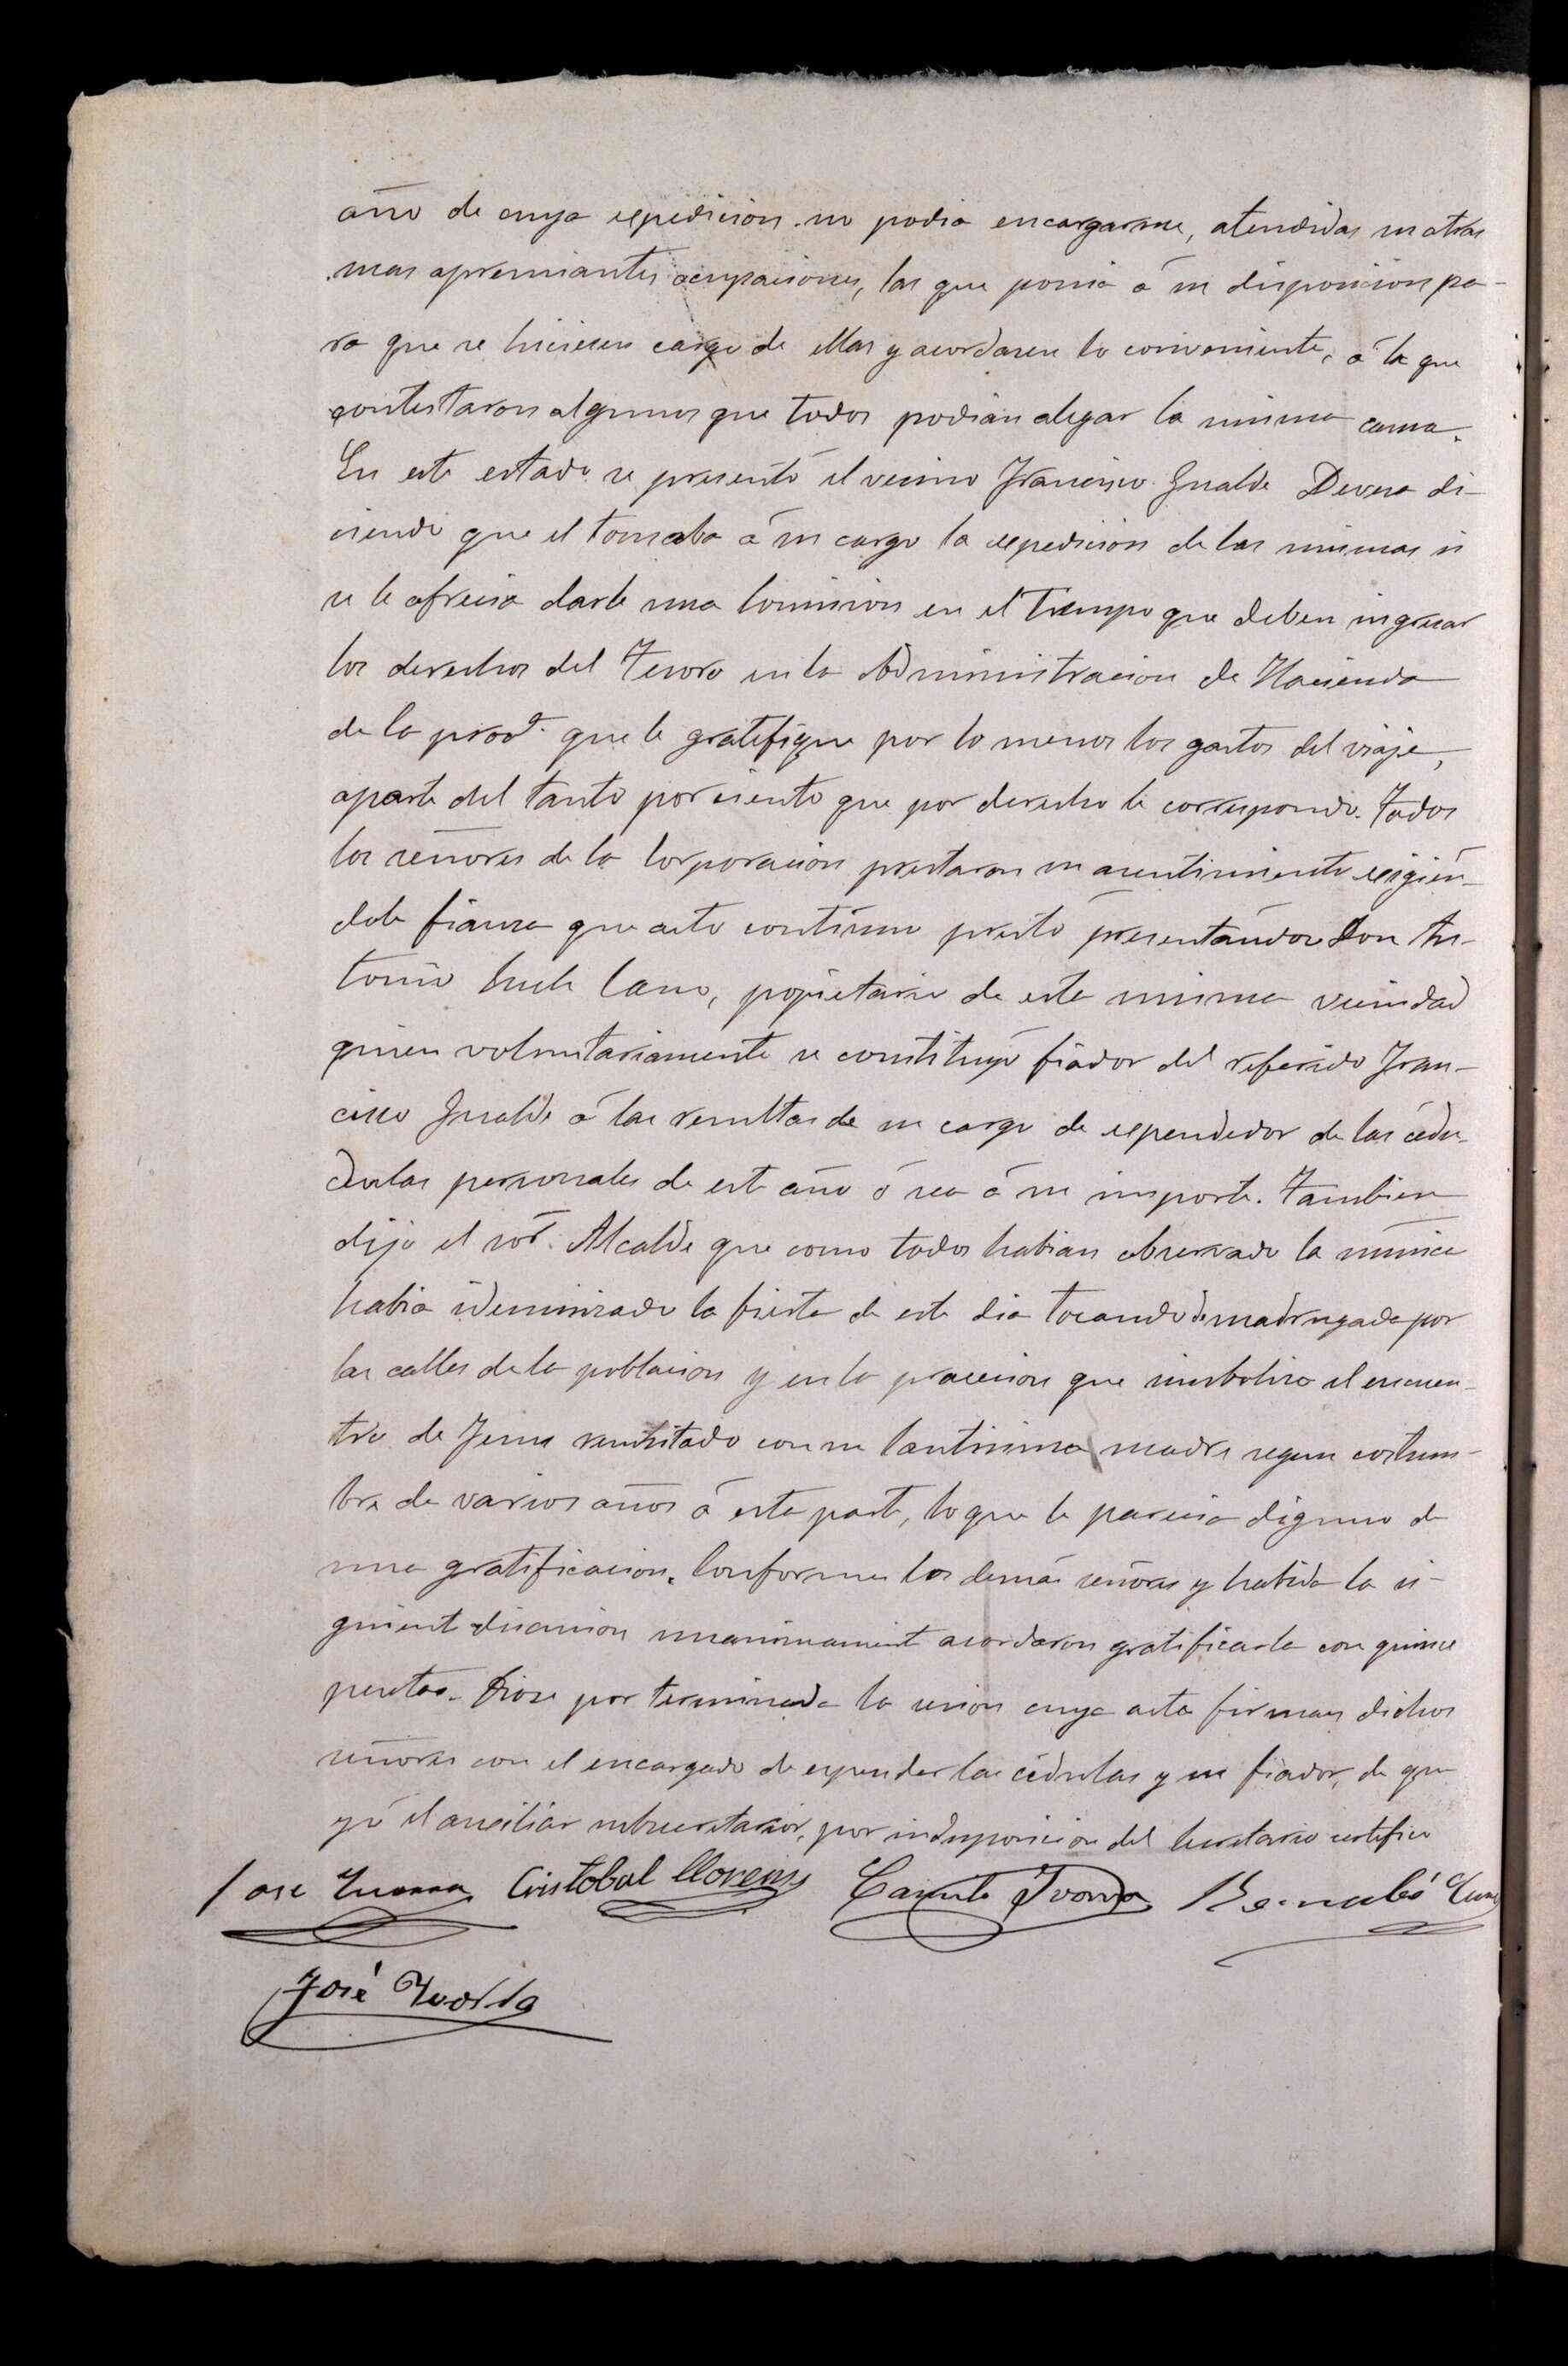 año de cuya espedicion no podia encargarme, atendidas su otras
mas apremiantes ocupaciones, las que ponia á su disposicion pa-
ra que se hiciesen cargo de ellas y acordasen lo conveniente, á la que
contestaron algunos que todos podian alegar la misma causa.
En este estado se presentó el vecino Francisco Gualde Devesa di-
ciendo que el tomaba á su cargo la espedicion de las mismas si
se le ofrecia darle una Comision en el Tiempo que deben ingresar
los derechos del Tesoro en la Administracion de Hacienda
de la provª. que le gratifique por lo menos los gastos del viaje,
aparte del tanto por ciento que por derecho le corresponde. Todos
los señores de la Corporacion prestaron su asentimiento esigién-
dole fianza que acto contínuo prestó presentándose Don An-
tonio Cano, propietario de esta misma vecindad
quien voluntariamente se constituyó fiador del referido Fran-
cisco Gualde á las resultas de su cargo de espendedor de las cédu-
dulas personales de este año ó sea á su importe. Tambien
dijo el sor. Alcalde que como todos habian observado la música
habia solemnizado la fiesta de este dia tocando de madrugada por
las calles de la poblacion y en la procesion que simboliza el encuen-
tro de Jesus resusitado con su Santisima madre segun costum-
bre de varios años á esta parte, lo que le parecia digno de
una gratificacion. Conformes los demás señores y habida la si-
guiente discusion unanimamente acordaron gratificarla con quince
pesetas. Diose por terminada la sesion cuya acta firman dichos
señores con el encargado de espender las cédulas y su fiador, de que
yó el ausiliar subsecretario, por indisposicion del Secretario certifico
Jose Cristobal Llorens Camilo Bernabé
José